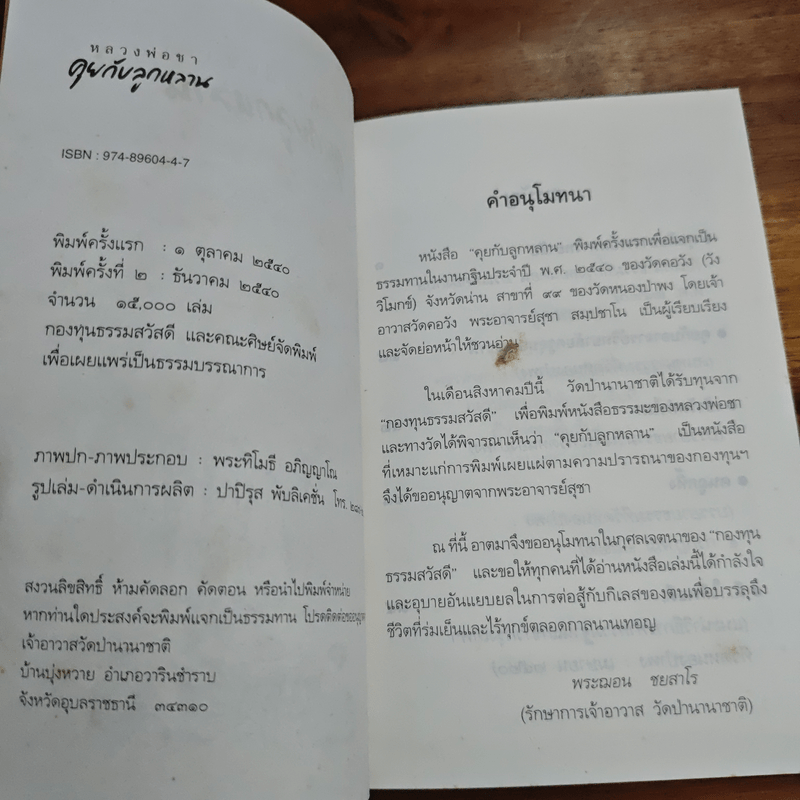 หลวงพ่อชา
คุยกับลูกหลาน
ISBN : 974-89604-4-7
พิมพ์ครั้งแรก : ๑ ตุลาคม ๒๕๔๐
พิมพ์ครั้งที่ ๒ : ธันวาคม ๒๕๔๐
จำนวน ๑๕,๐๐๐ เล่ม
กองทุนธรรมสวัสดี และคณะศิษย์จัดพิมพ์
เพื่อเผยแพร่เป็นธรรมบรรณาการ
ภาพปก-ภาพประกอบ : พระทิโมธี อภิญญาโณ
รูปเล่ม-ดำเนินการผลิต : ปาปิรุส พับลิเคชั่น โทร.
สงวนลิขสิทธิ์ ห้ามคัดลอก คัดตอน หรือนำไปพิมพ์จำหน่าย
หากท่านใดประสงค์จะพิมพ์แจกเป็นธรรมทาน โปรดติดต่อ
เจ้าอาวาสวัดป่านานาชาติ
บ้านบุ่งหวาย อำเภอวารินชำราบ
จังหวัดอุบลราชธานี ๓๔๓๑๐
คำอนุโมทนา
หนังสือ "คุยกับลูกหลาน" พิมพ์ครั้งแรกเพื่อแจกเป็น
ธรรมทานในงานกฐินประจำปี พ.ศ. ๒๕๔๐ ของวัดคอวัง (วัง
วิโมกข์) จังหวัดน่าน สาขาที่ ๙๙ ของวัดหนองป่าพง โดยเจ้า
อาวาสวัดคอวัง พระอาจารย์สุชา สมฺปชาโน เป็นผู้เรียบเรียง
และจัดย่อหน้าให้ชวนอ่าน
ในเดือนสิงหาคมปีนี้ วัดป่านานาชาติได้รับทุนจาก
"กองทุนธรรมสวัสดี" เพื่อพิมพ์หนังสือธรรมะของหลวงพ่อชา
และทางวัดได้พิจารณาเห็นว่า "คุยกับลูกหลาน" เป็นหนังสือ
ที่เหมาะแก่การพิมพ์เผยแผ่ตามความปรารถนาของกองทุนฯ
จึงได้ขออนุญาตจากพระอาจารย์สุชา
ณ ที่นี้ อาตมาจึงขออนุโมทนาในกุศลเจตนาของ "กองทุน
ธรรมสวัสดี" และขอให้ทุกคนที่ได้อ่านหนังสือเล่มนี้ได้กำลังใจ
และอุบายอันแยบยลในการต่อสู้กับกิเลสของตนเพื่อบรรลุถึง
ชีวิตที่ร่มเย็นและไร้ทุกข์ตลอดกาลนานเทอญ
พระฌอน ชยสาโร
(รักษาการเจ้าอาวาส วัดป่านานาชาติ)